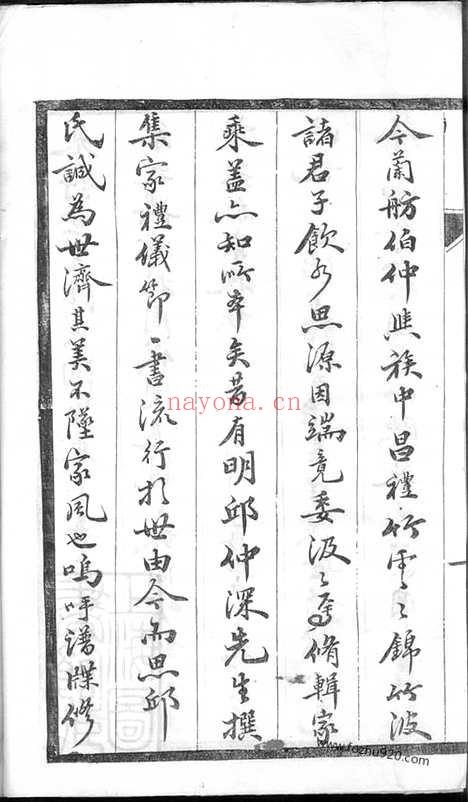 今蘭舫伯仲與族中昌禮竹雲雲錦竹波
諸君子飲水思源因端竟委汲汲焉脩輯家
乘盖亦知所本矣昔有明邱仲深先生撰
集家禮儀節一書流行於世由今而思邱
氏誠為世濟其美不墜家風也嗚呼譜牒修
nayona.cn
www.fozhu920.com